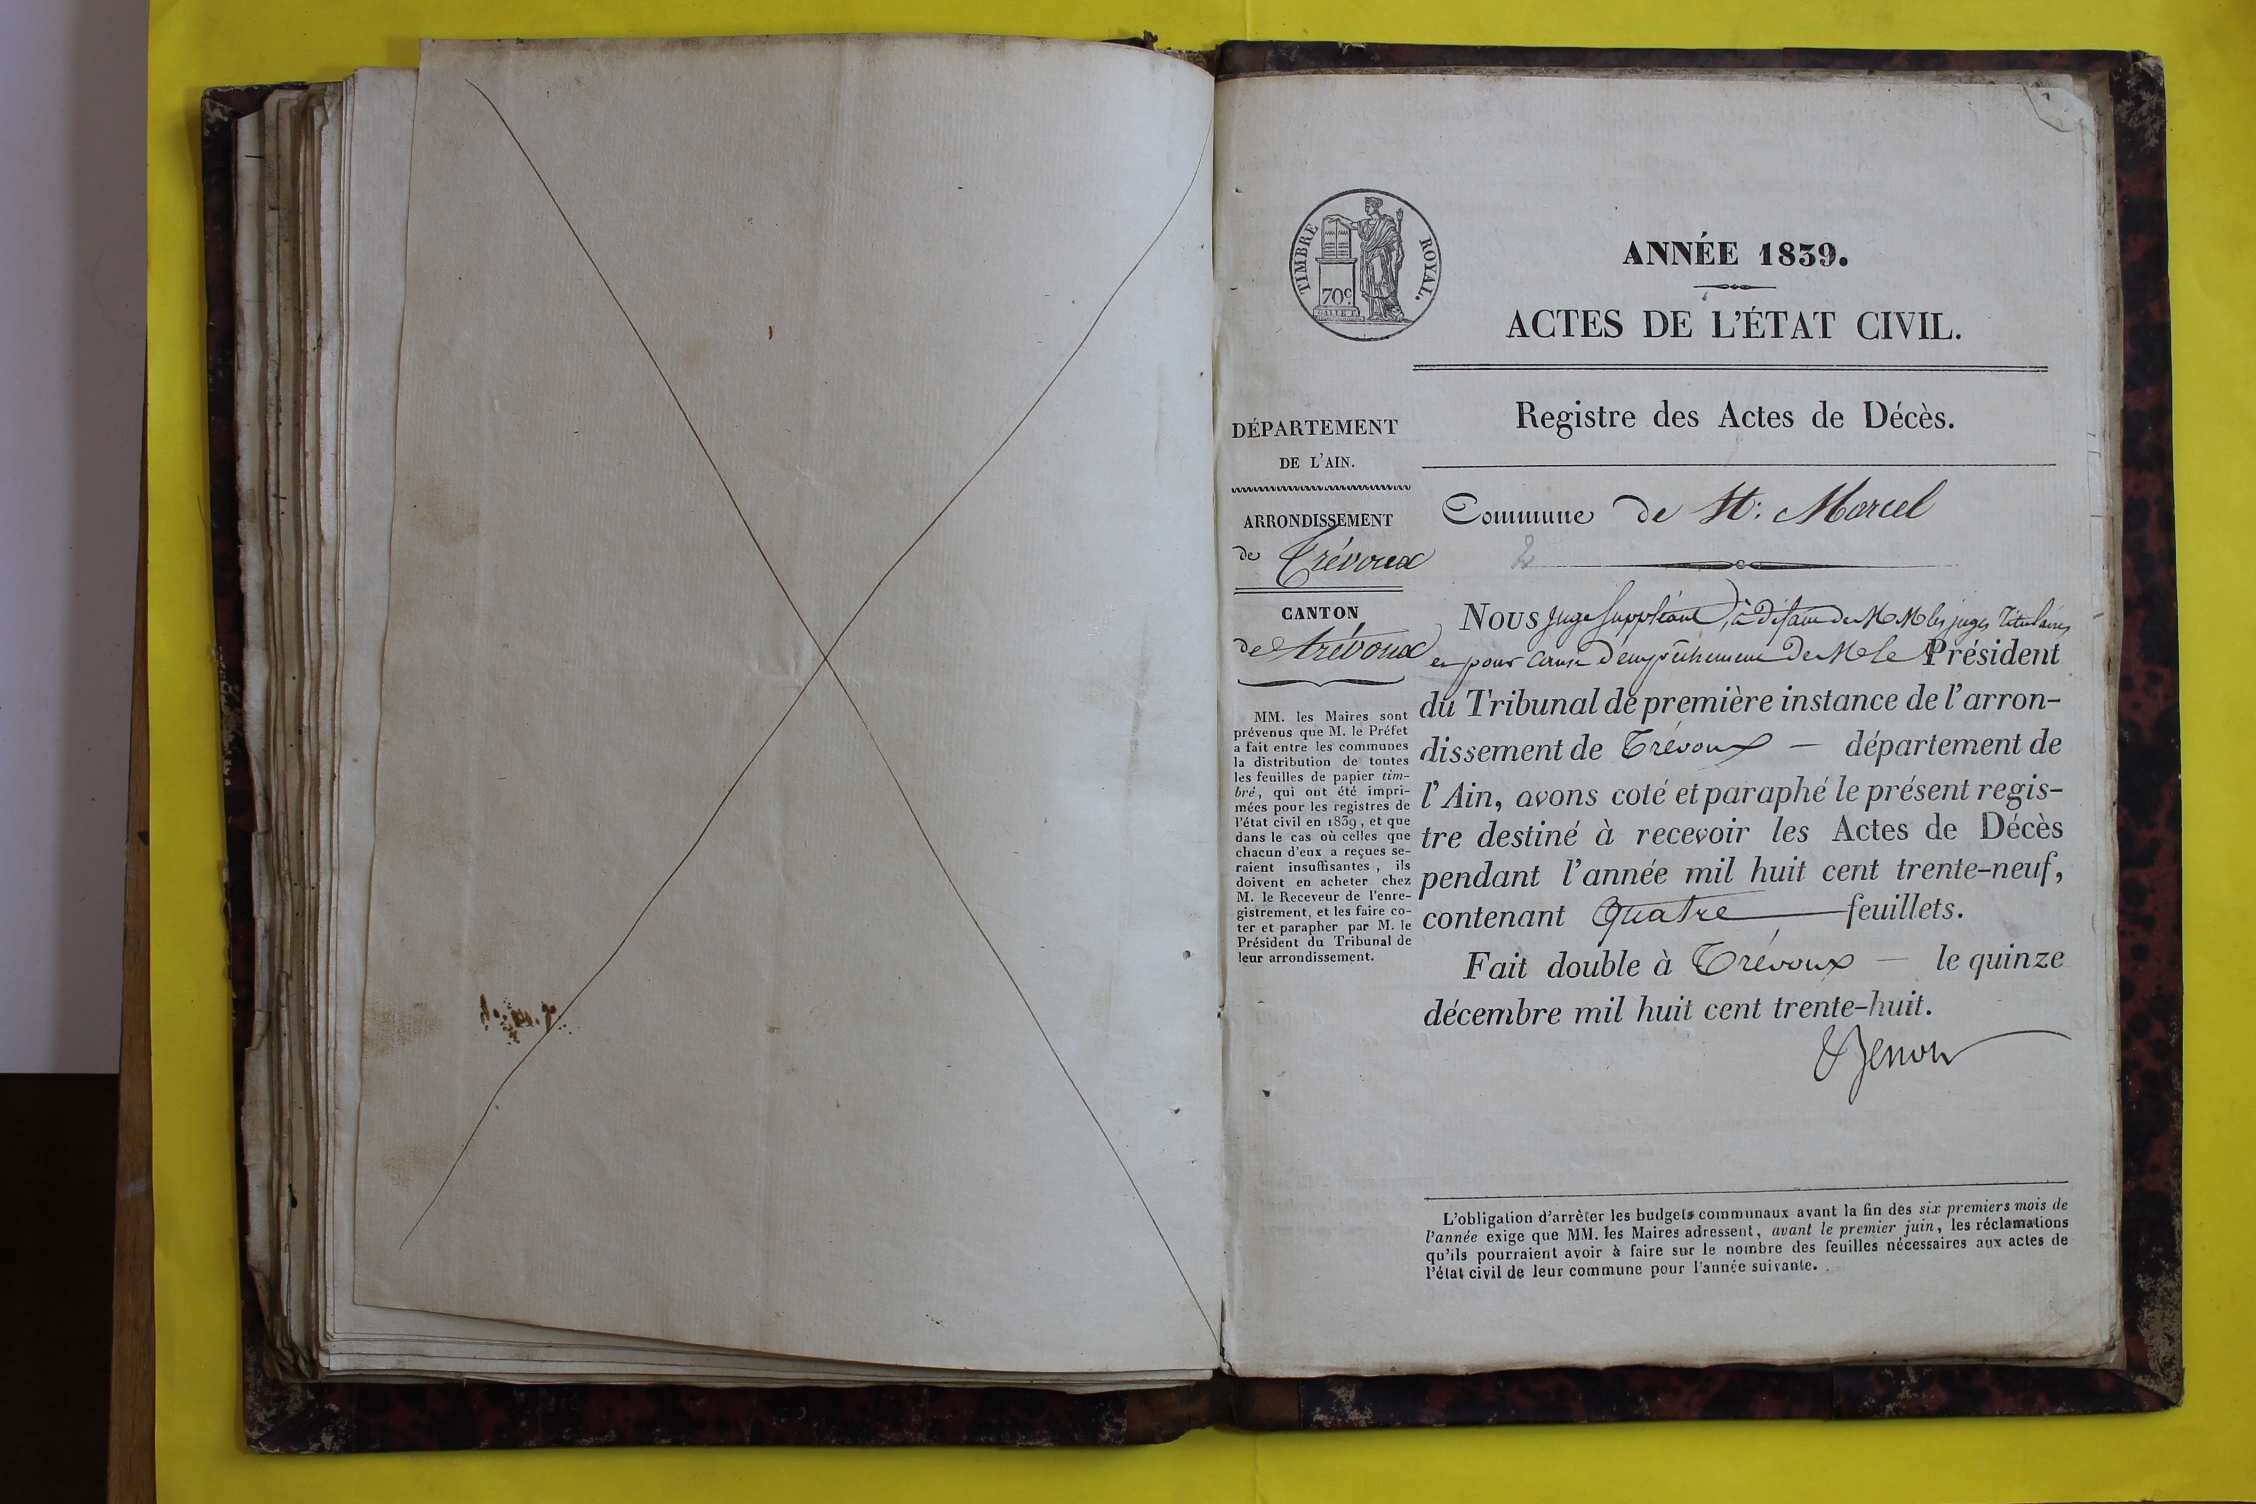 TIMBRE ROYAL.
70c.
ANNÉE 1839.
ACTES DE L'ÉTAT CIVIL.
Registre des Actes de Décès.
DÉPARTEMENT
DE L'AIN.
ARRONDISSEMENT
de Trévoux
CANTON
de Trévoux
MM. les Maires sont
prévenus que M. le Préfet
a fait entre les communes
la distribution de toutes
les feuilles de papier tim-
bré, qui ont été impri-
mées pour les registres de
l'état civil en 1839, et que
dans le cas où celles que
chacun d'eux a reçues se-
raient insuffisantes, ils
doivent en acheter chez
M. le Receveur de l'enre-
gistrement, et les faire co-
ter et parapher par M. le
Président du Tribunal de
leur arrondissement.
Commune de St: Marcel
NOUS juge suppléant, à défaut de MM les juges titulaires
et pour cause d'empêchement de M le Président
du Tribunal de première instance de l'arron-
dissement de Trévoux — département de
l'Ain, avons coté et paraphé le présent regis-
tre destiné à recevoir les Actes de Décès
pendant l'année mil huit cent trente-neuf,
contenant quatre feuillets.
Fait double à Trévoux — le quinze
décembre mil huit cent trente-huit.
L'obligation d'arrêter les budgets communaux avant la fin des six premiers mois de
l'année exige que MM. les Maires adressent, avant le premier juin, les réclamations
qu'ils pourraient avoir à faire sur le nombre des feuilles nécessaires aux actes de
l'état civil de leur commune pour l'année suivante.